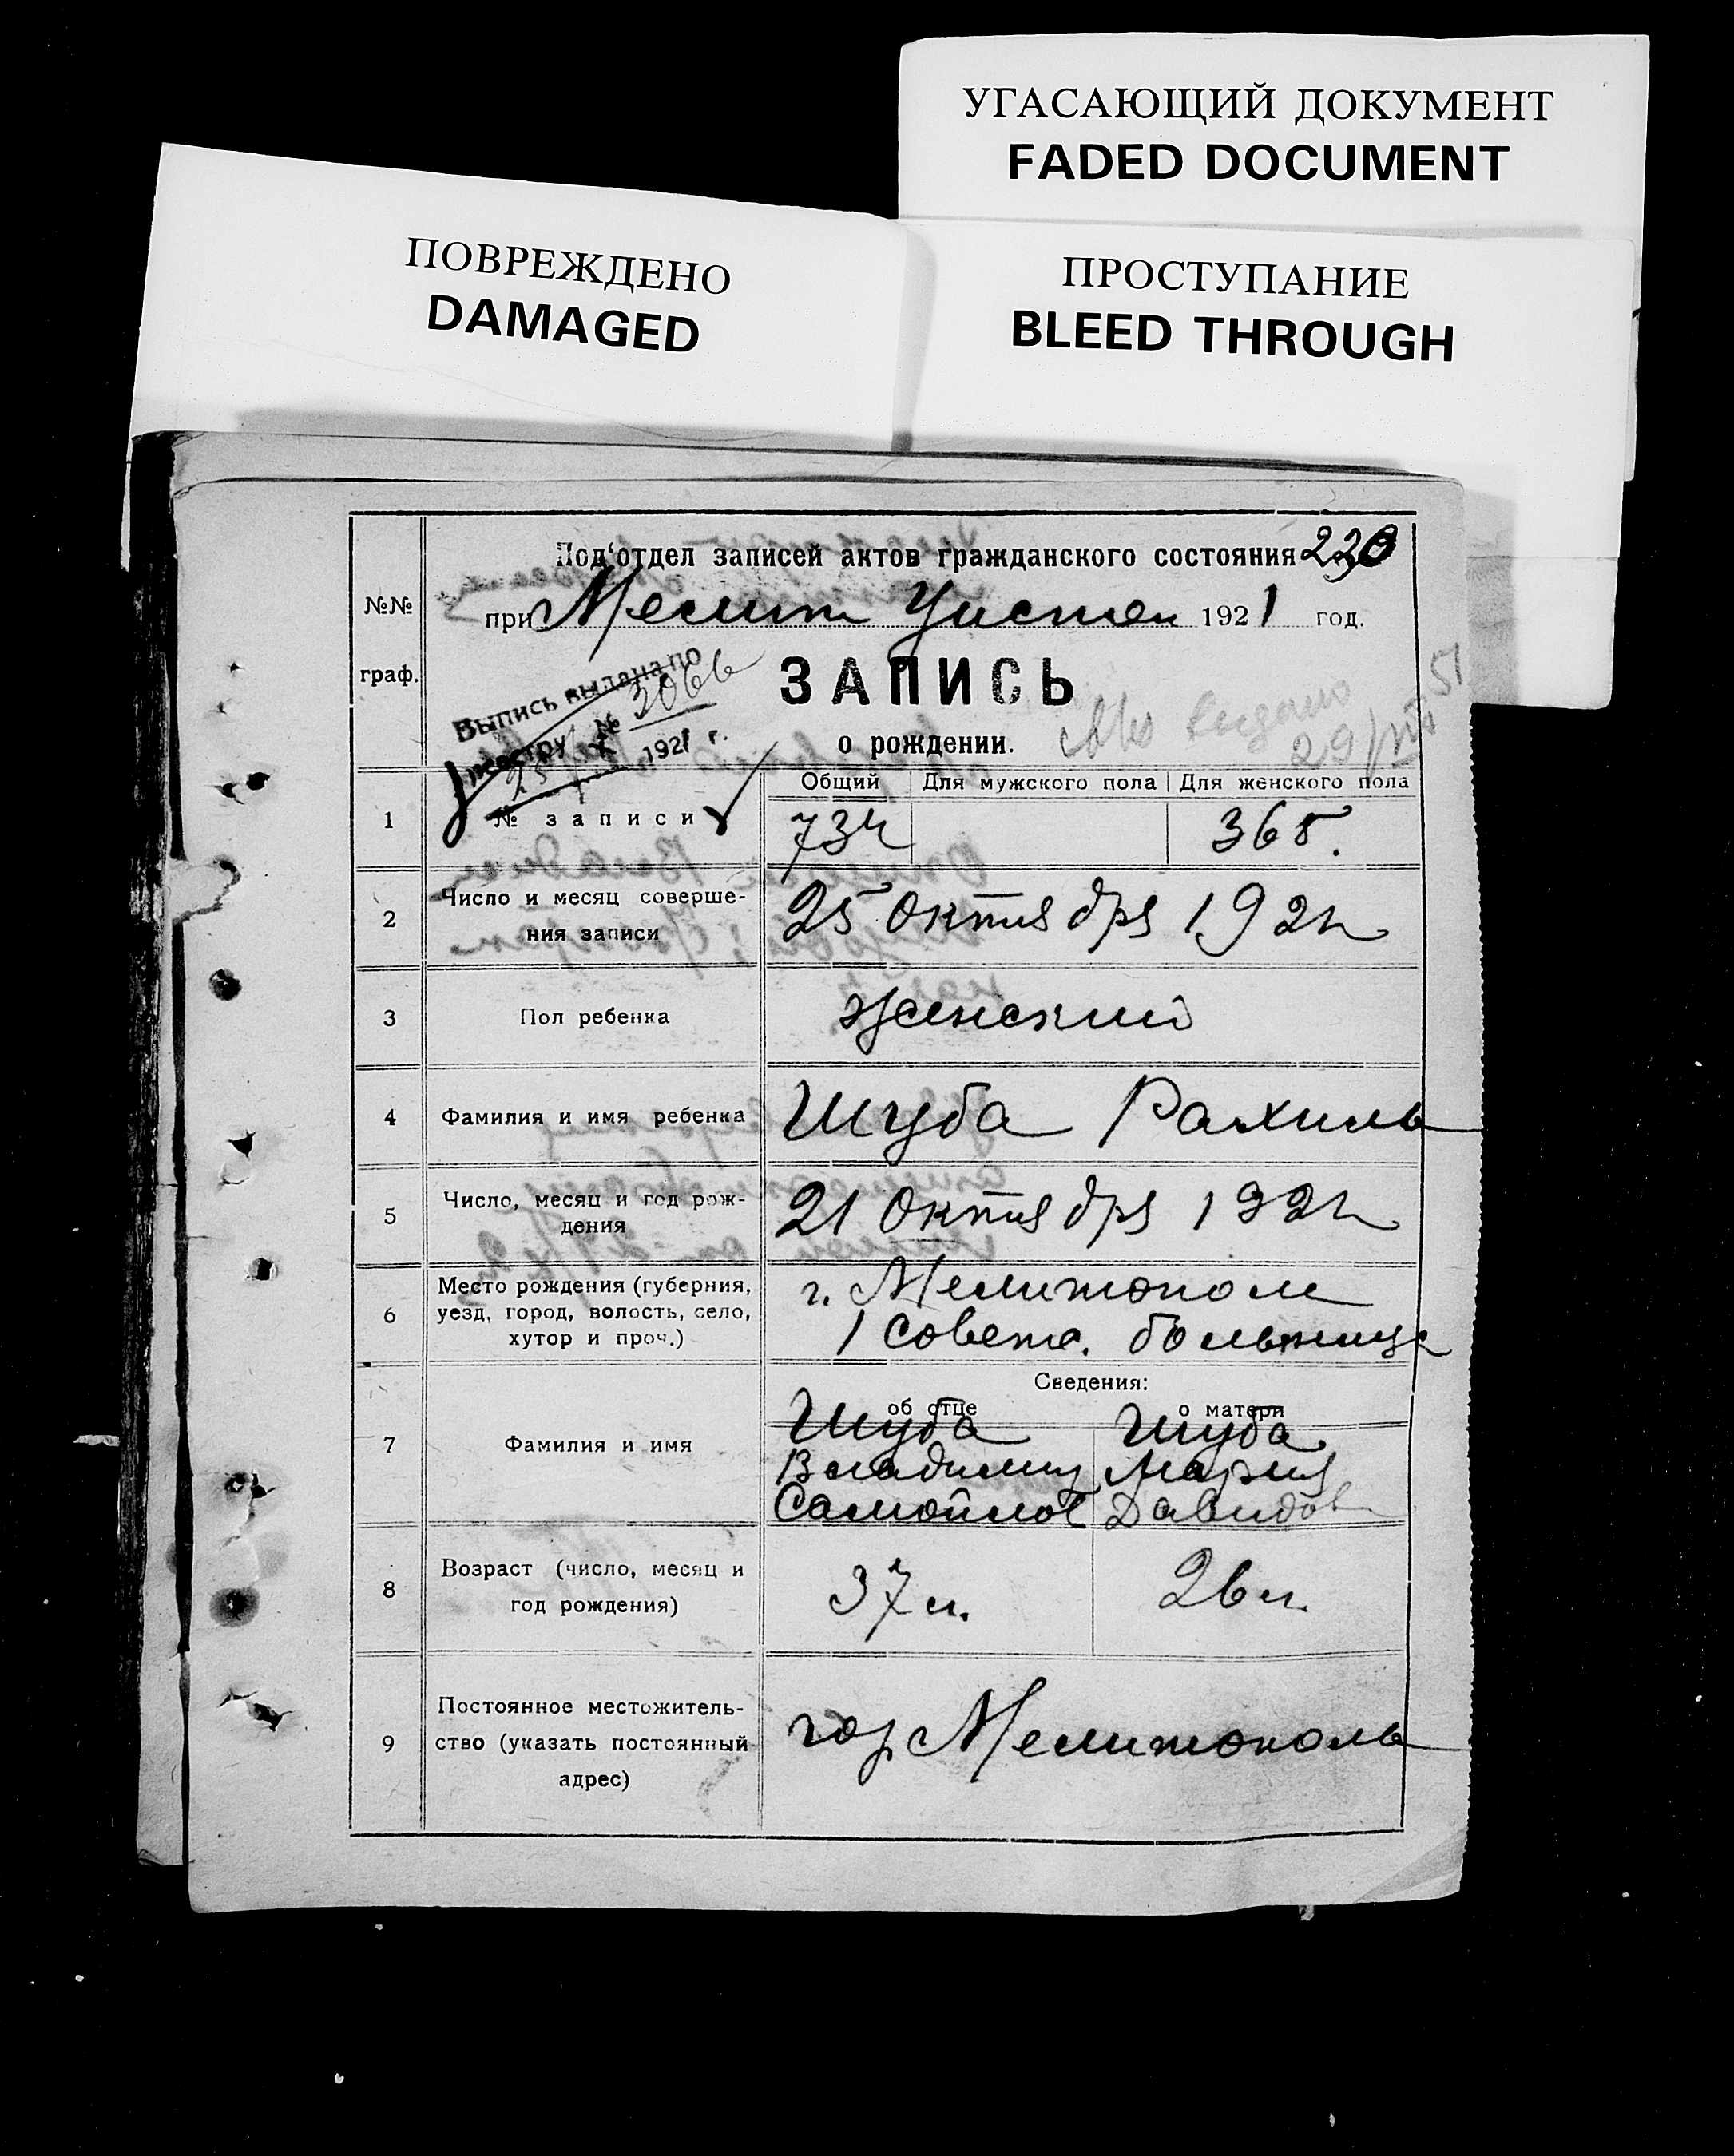 УГАСАЮЩИЙ ДОКУМЕНТ
FADED DOCUMENT
ПОВРЕЖДЕНО
DAMAGED
ПРОСТУПАНИЕ
BLEED THROUGH
Под'отдел записей актов гражданского состояния
№№
граф.
при Мелит 1921 год.
ЗАПИСЬ
о рождении.
Выпись выдана по
реестру № 3066
1921 г.
29/VIII 51
Общий Для мужского пола Для женского пола
1 № записи 365.
2 Число и месяц соверше-
ния записи
25 октября 1921
3 Пол ребенка женский
4 Фамилия и имя ребенка Шуба Рахиль
5 Число, месяц и год рож-
дения
21 октября 1921
6 Место рождения (губерния,
уезд, город, волость, село,
хутор и проч.)
г. Мелитополе
1 Советс. больница
Сведения:
об отце о матери
7 Фамилия и имя
Шуба Шуба
Владимир Мария
Самойлов Давидов
8 Возраст (число, месяц и
год рождения)
37 л. 26 л.
9 Постоянное местожитель-
ство (указать постоянный
адрес)
гор Мелитополь